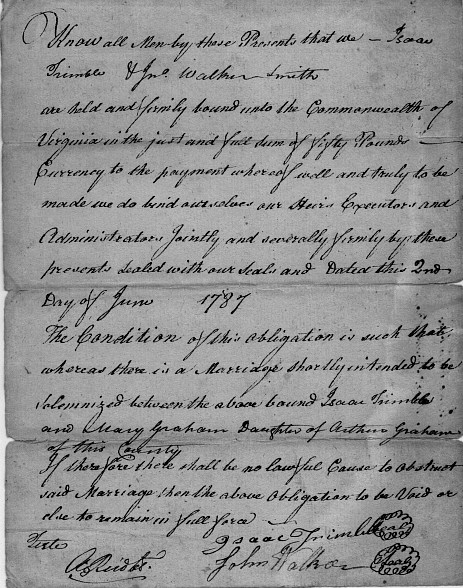 Know all Men by these Presents that we – Isaac
Trimble & Jno. Walker Smith
are held and firmly bound unto the Commonwealth of
Virginia in the just and full sum of fifty Pounds –
Currency to the payment whereof well and truly to be
made we do bind ourselves our Heirs Executors and
Administrators Jointly and severally firmly by these
presents sealed with our seals and Dated this 2nd
Day of June 1787
The Condition of this Obligation is such that
whereas there is a Marriage shortly intended to be
solemnized between the above bound Isaac Trimble
and Mary Graham Daughter of Arthur Graham
of this County
If therefore there shall be no lawful Cause to Obstruct
said Marriage then the above Obligation to be Void or
else to remain in full force –
Teste
Isaac Trimble Seal
A Reid
John Walker Seal